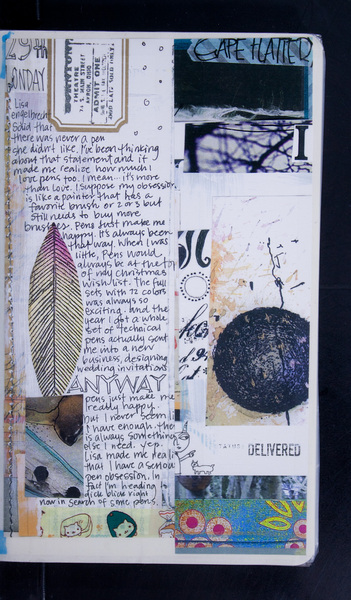 29th
MONDAY
CANTON
THEATRE
75 S. MAIN STREET
AKRON, OHIO
ADMIT ONE
CAPE HATTER
I
Lisa
engelbrech
said that
there was never a pen
she didn't like. I've been thinking
about that statement and it
made me realize how much I
love pens too. I mean... it's more
than love. I suppose my obsession
is like a painter that has a
favorite brush or 2 or 5 but
still needs to buy more
brushes. Pens just make me
happy. It's always been
that way. When I was
little, Pens would
always be at the top
of my Christmas
wish list. The full
sets with 72 colors
was always so
exciting. And the
year I got a whole
set of technical
pens actually sent
me into a new
business, designing
wedding invitations.
ANYWAY
pens just make me
really happy.
but I never seem
I have enough. there
is always something
else I need. yep.
Lisa made me real
that I have a serious
pen obsession. In
fact I'm heading to
dick blick right
now in search of some pens.
DELIVERED